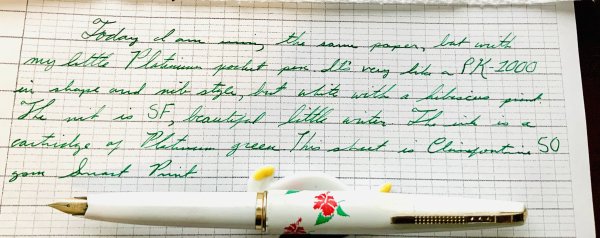 Today I am using the same paper, but with
my little Platinum pocket pen. It's very like a PK-2000
in shape and nib style, but white with a hibiscus print.
The nib is SF, beautiful little writer. The ink is a
cartridge of Platinum green. This sheet is Clairefontaine 50
gsm Smart Print